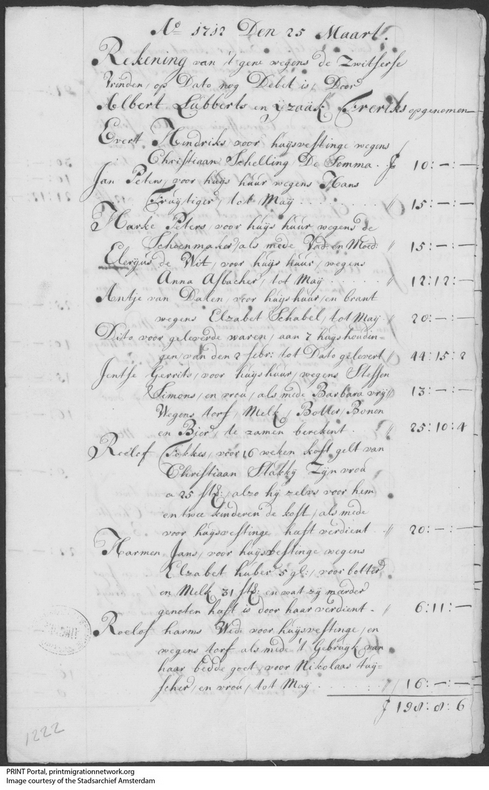 Ao 1712 Den 25 Maart.
Rekening van 't gene wegens de Zwitserse
Vrinden, op Dato nog Debet is, Door
Albert Lubberts en Yzaak Frerits opgenomen
Evert Hendriks voor huysvestinge wegens
Christiaan Schelling De Somma f 10:-:-
Jan Peters, voor huys huur wegens Hans
tot May 15:-:-
Harke Peters voor huys huur wegens de
Schoenmaker, als mede 15:-:-
de Wit, voor huys huur, wegens
Anna Asbacher, tot May 12:12:-
Antje van Dalen, voor huys huur en brant
wegens Elzabet Schabel, tot May 20:-:-
Dito voor geleverde waren, aan 7 huyshoudin-
gen van den 2 febr: tot Dato gelevert 44:15:2
Jentse Gerrits, voor huyshuur, wegens Steffen
Simons, en vrou, als mede Barbara vry 13:-:-
Wegens torf, Melk, Botter, Bonen
en Bier, te zamen berekent 25:10:4
Roelof Fokkes, voor 16 weken kost gelt van
Christiaan Stakky Zyn vrou
a 25 st: also hy zelvs voor hem
en twe kinderen de kost, als mede
voor huysvestinge heeft verdient 20:-:-
Harmen Jans, voor huysvestinge wegens
Elzabet huber 5 gl: voor botter
en Melk 31 st: en wat zy meerder
genoten haft is door haar verdient 6:11:-
Roelof harms Wed: voor huysvestinge, en
wegens torf als mede 't Gebruyk van
haar bedde goet, voor Nikolaas
scher, en vrou, tot May 16:-:-
f 198:8:6
1222
PRINT Portal, printmigrationnetwork.org
Image courtesy of the Stadsarchief Amsterdam